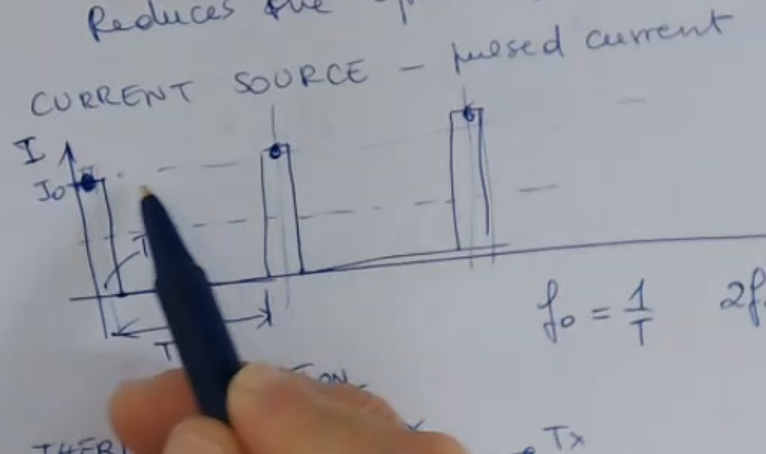 Reduces the
CURRENT SOURCE – pulsed current
I
I₀
T
f₀ = 1/T
T
Tx